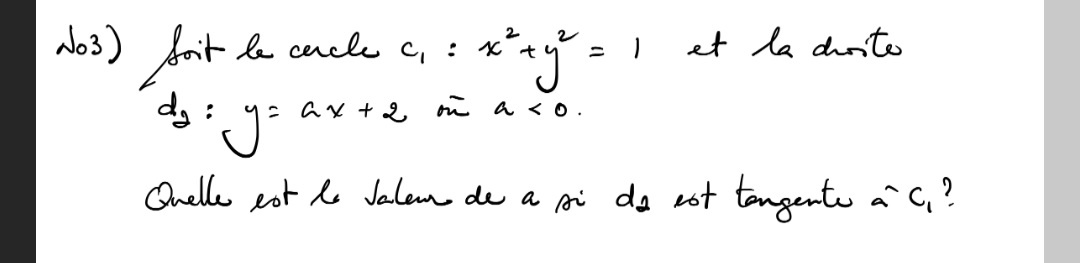 No3) Soit le cercle C₁ : x² + y² = 1 et la droite
d₂ : y = ax + 2 où a < 0.
Quelle est la valeur de a si d₂ est tangente à C₁ ?